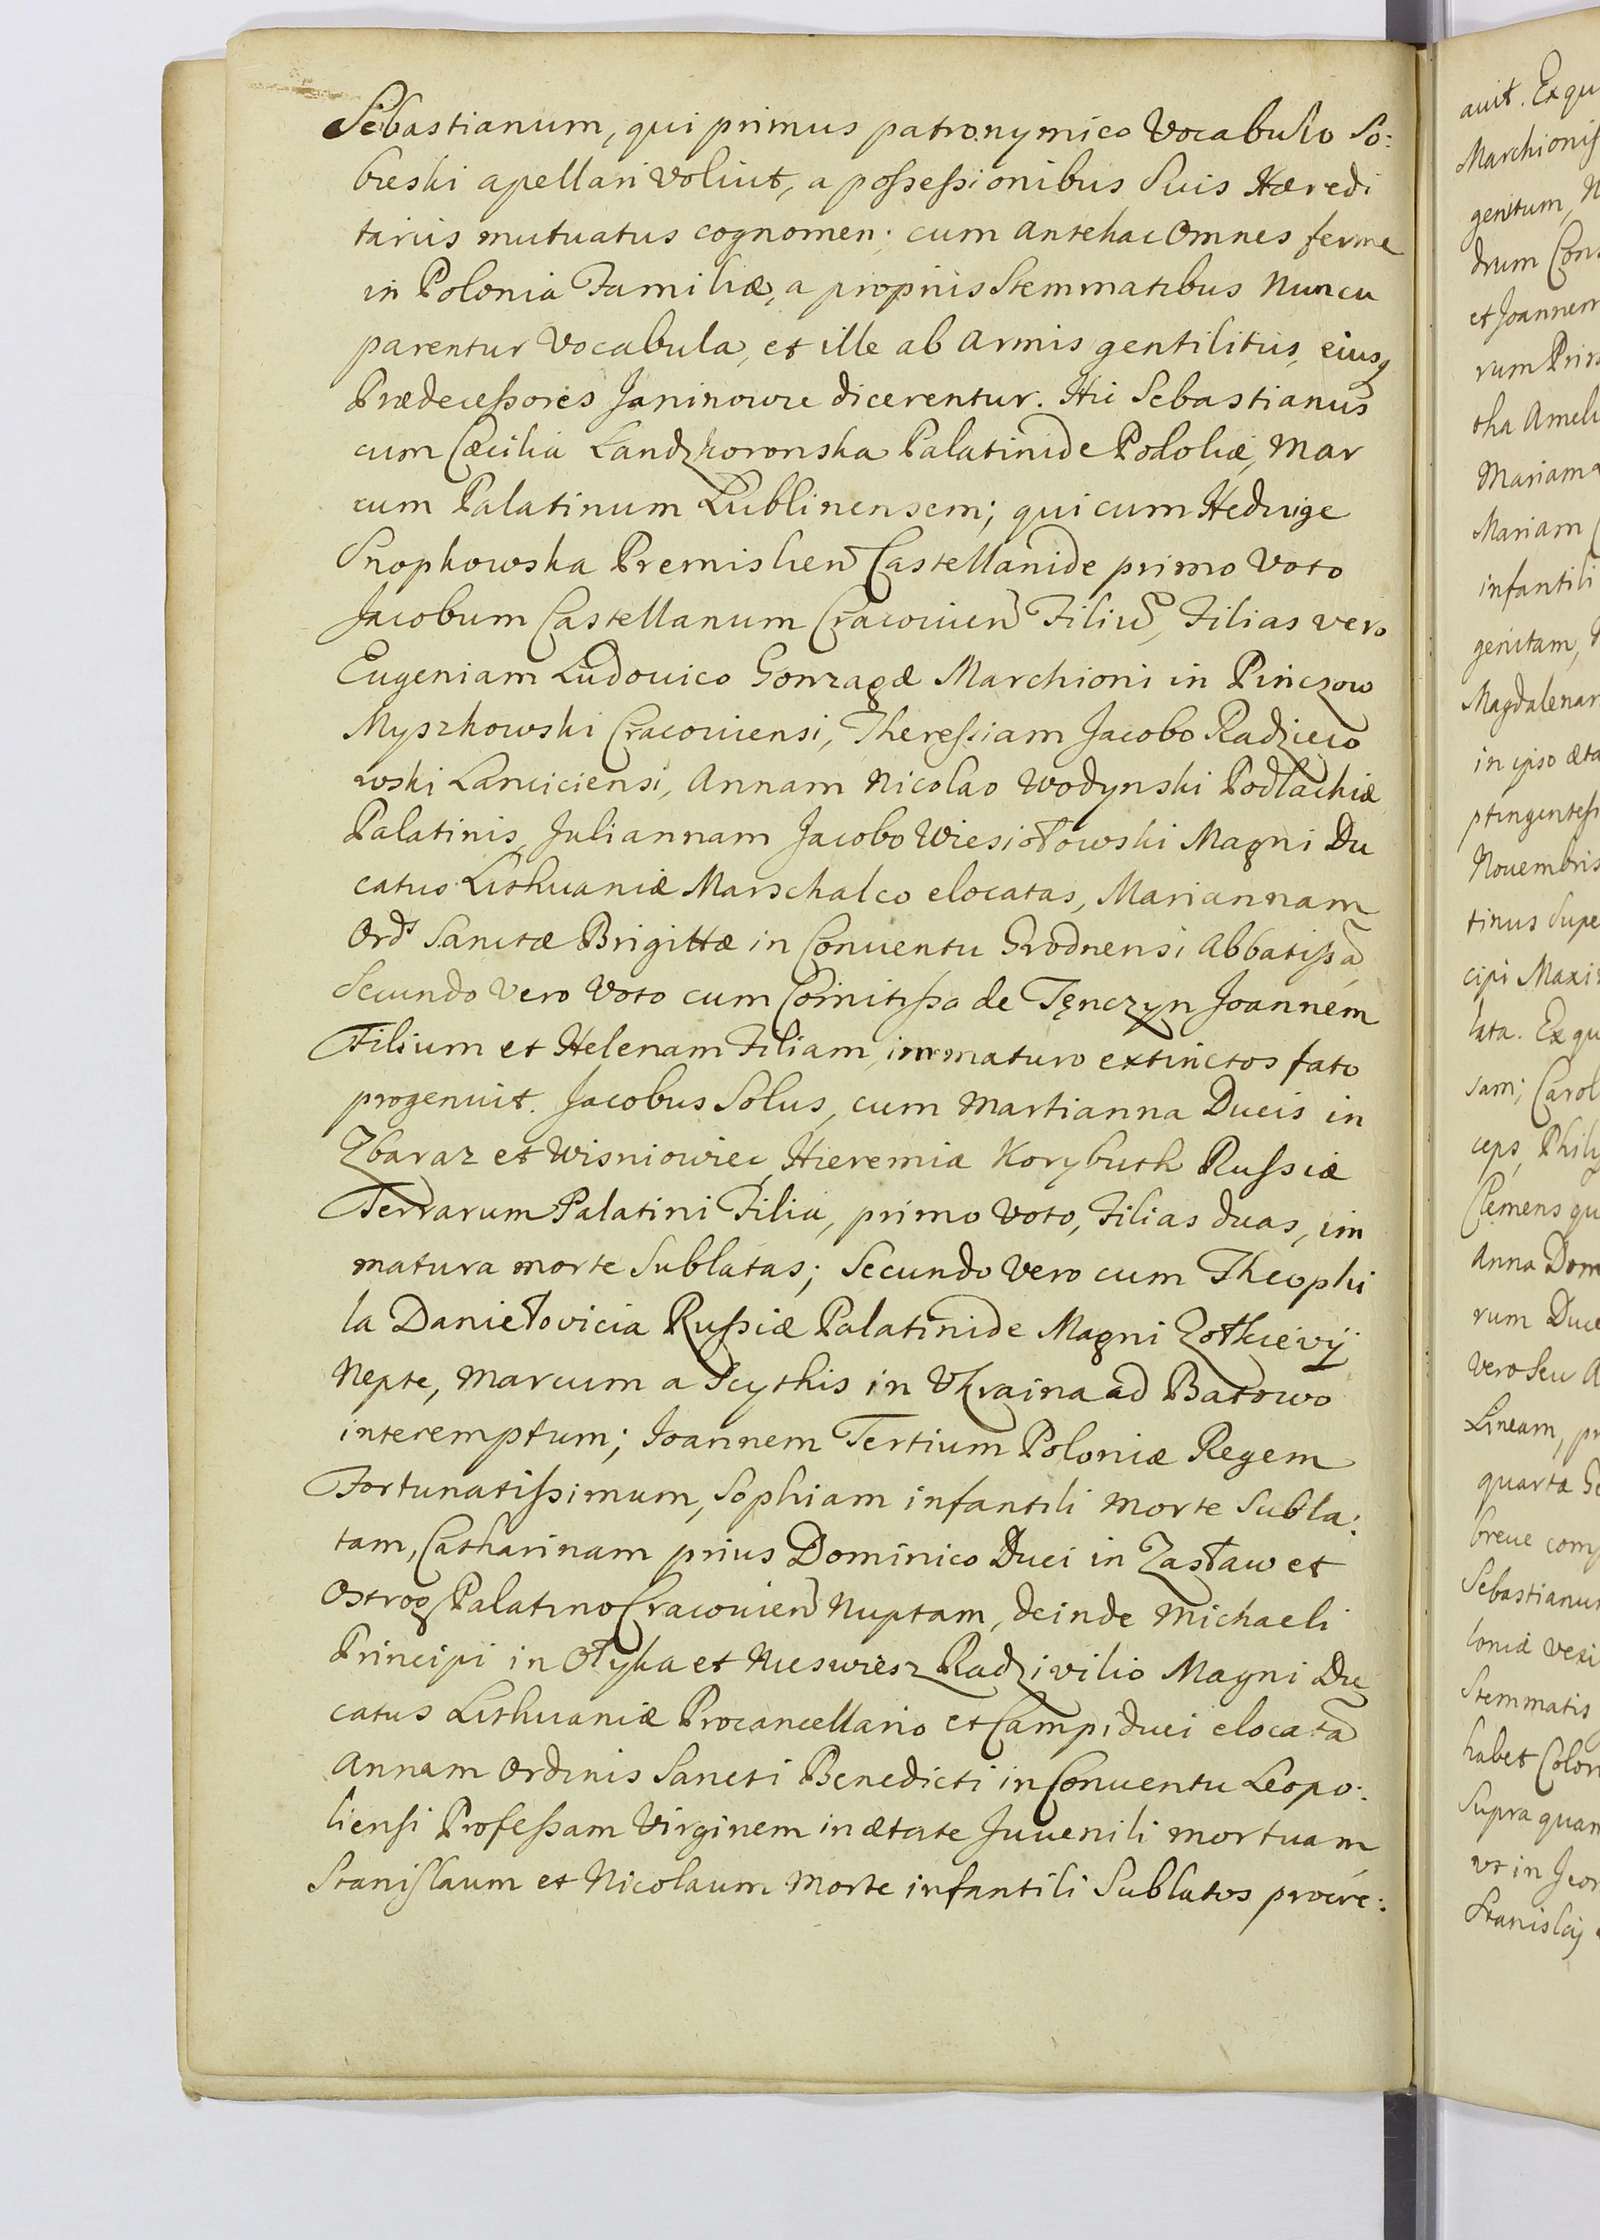 Sebastianum, qui primus patronymico Vocabulo So:
bieski apellari voliut, a possessionibus Suis Hæredi
tariis mutuatus cognomen; cum antehac Omnes ferme
in Polonia Familiæ, a propriis Stemmatibus Nuncu
parentur Vocabula, et ille ab armis gentilitiis, eiusq
Prædecessores Janinowie dicerentur. Hic Sebastianus
cum Cæcilia Landzkoronska Palatinide Podoliæ, Mar
cum Palatinum Lublinensem; qui cum Heduige
Snopkowska Premislien Castellanide primo Voto
Jacobum Castellanum Cracouien Filiu, Filias vero
Eugeniam Ludouico Gonzagæ Marchioni in Pinczow
Myszkowski Cracouiensi, Theressiam Jacobo Radzieio
wski Lanciciensi, Annam Nicolao Wodynski Podlachiæ
Palatinis, Juliannam Jacobo Wiesiołowski Magni Du
catus Lithuaniæ Marschalco elocatas, Mariannam
Ords Sanctæ Brigittæ in Conuentu Grodnensi Abbatissã
Secundo Vero Voto cum Comitissa de Tęnczyn Joannem
Filium et Helenam Filiam, immaturo extinctos fato
progenuit. Jacobus Solus, cum Martianna Ducis in
Zbaraz et Wisniowiec Hieremiæ Korybuth Russiæ
Terrarum Palatini Filia, primo Voto, Filias duas, im
matura morte Sublatas; Secundo Vero cum Theophi
la Daniełovicia Russiæ Palatinide Magni Zołkievij
Nepte, Marcum a Scythis in Vkraina ad Batowo
interemptum; Joannem Tertium Poloniæ Regem
Fortunatissimum, Sophiam infantili Morte Subla:
tam, Catharinam prius Dominico Duci in Zasław et
Ostrog Palatino Cracouien Nuptam, deinde Michaeli
Principi in Ołyka et Nieswiesz Radzivilio Magni Du
catus Lithuaniæ Procancellario et Campiduci elocatã
Annam Ordinis Sancti Benedicti in Conuentu Leopo:
liensi Professam Virginem in ætate Juuenili mortuam
Stanislaum et Nicolaum Morte infantili Sublatos procre:
auit. Ex qu
Marchionis
genitum, N
drum Cons
et Joannem
rum Prin
Mariam
infantili
genitam,
Magdalenam
in ipso æta
Nouembris
tinus Supe
cipi Maxi
lata. Ex qu
sam; Carol
ceps, Phili
Clemens qu
Anna Dom
rum Duc
Vero Seu A
Lineam, pr
quarta
breue com
Sebastianu
loniæ vexi
Stemmatis
habet Colo
Supra quam
vt in
Stanislaj